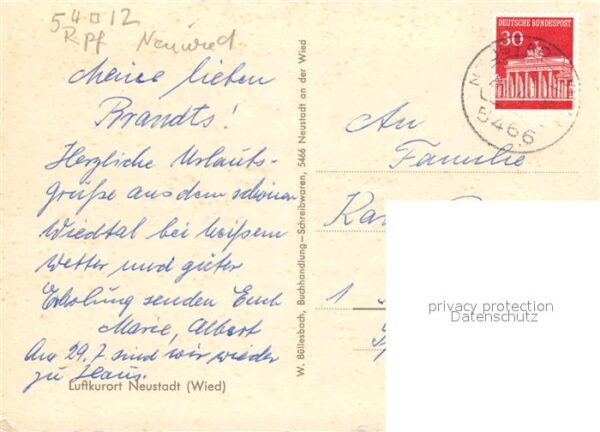 54 12
RPf Neuwied
Meine lieben
Brandts!
Herzliche Urlaubs-
grüße aus dem schönen
Wiedtal bei heißem
Wetter und guter
Erholung senden Euch
Marie, Albert
Am 29.7. sind wir wieder
zu Haus.
Luftkurort Neustadt (Wied)
W. Büllesbach, Buchhandlung–Schreibwaren, 5466 Neustadt an der Wied
DEUTSCHE BUNDESPOST
30
5466
An
Familie
Kar
1
privacy protection
Datenschutz